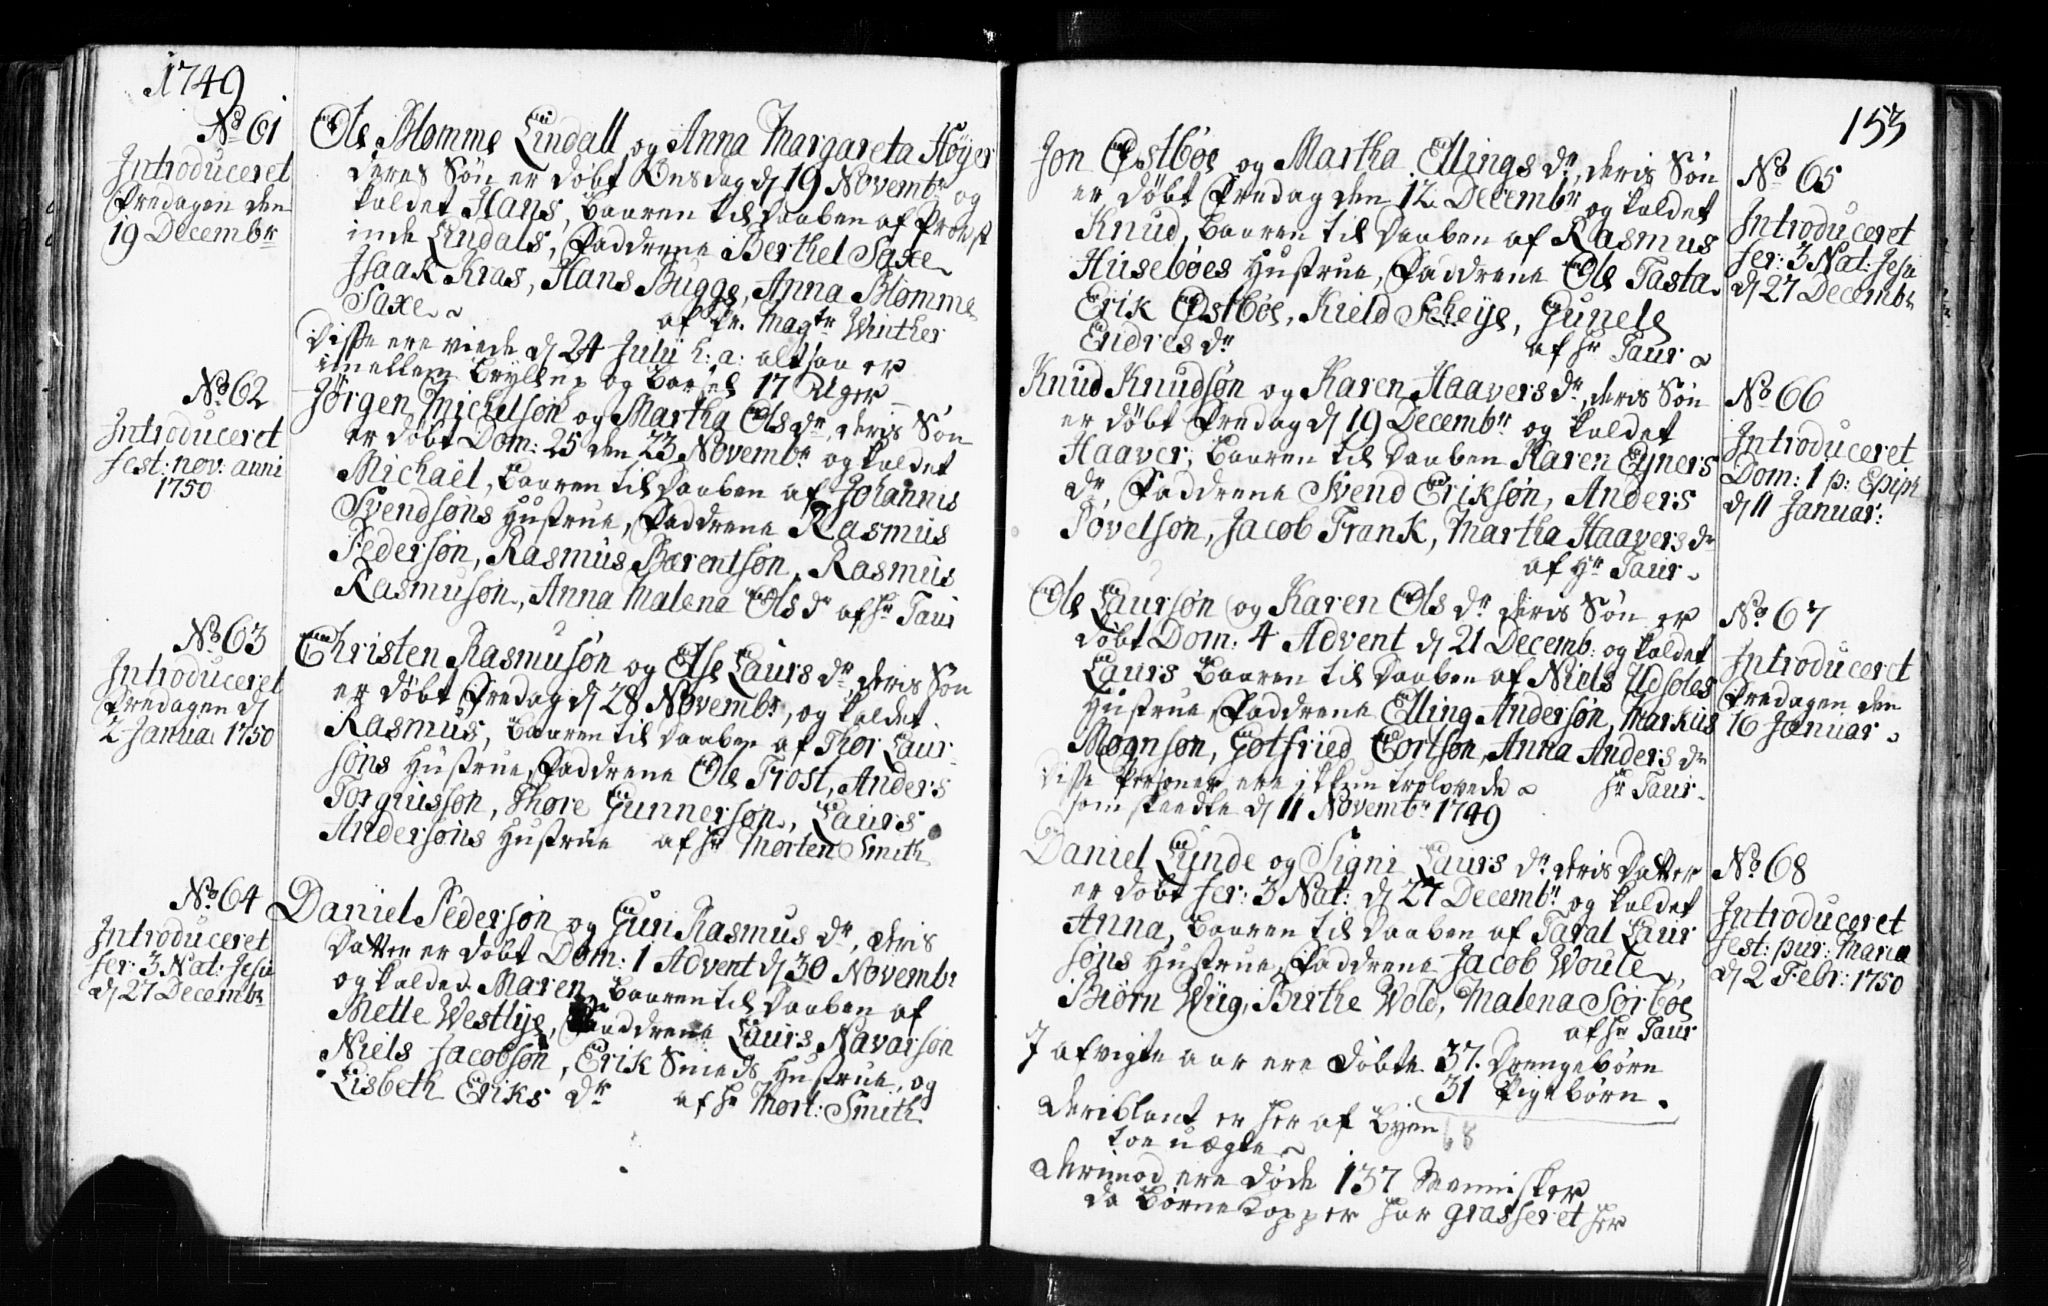 1749
No 61
Introduceret
Fredagen den
19 Decembr
Ole Blomme Lindall og Anna Margareta Høyer
deres Søn er døbt Onsdag d 19 Novembr og
kaldet Hans, baaren til Daaben af Proust
inde Lindals, Faddrene Berthel Saxe
Isaak Kras, Hans Bugge, Anna Blomme
Saxe. af Hr. Magtr Winther
Disse ere viede d 24 Julij h: a: altsaa er
imellem Bryllup og Barsel 17 Uger
No 62
Introduceret
fest: nov: anni
1750
Jørgen Michelsøn og Martha Ols dr, deris Søn
er døbt Dom: 25 den 23 Novembr og kaldet
Michael, baaren til Daaben af Johannis
Svendsøns Hustrue, Faddrene Rasmus
Pedersøn, Rasmus Barentsøn, Rasmus
Rasmusøn, Anna Malena Ols dr af Hr Taur
No 63
Introduceret
Fredagen d
2 Januar 1750
Christen Rasmusøn og Else Laurs dr, deris Søn
er døbt Fredag d 28 Novembr, og kaldet
Rasmus, baaren til Daaben af Thor Laur-
søns Hustrue, Faddrene Ole Trost, Anders
Torgiussøn, Thore Gunnersøn, Laurs
Andersøns Hustrue af Hr Morten Smith
No 64
Introduceret
fer: 3 Nat: Jesu
d 27 Decembr
Daniel Pedersøn og Guri Rasmus dr, deris
Datter er døbt Dom: 1 Advent d 30 Novembr
og kaldet Maren, baaren til Daaben af
Mette Westlye, Faddrene Laurs Navarsøn
Niels Jacobsøn, Erik Smeds Hustrue, og
Lisbeth Eriks dr af Hr Mort: Smith
153
Jon Østbøe og Martha Ellings dr, deris Søn
er døbt Fredag den 12 Decembr og kaldet
Knud, baaren til Daaben af Rasmus
Husebøes Hustrue, Faddrene Ole Tasta
Erik Østbøe, Kield Scheije, Gunele
Endres dr af Hr Taur
No 65
Introduceret
fer: 3 Nat: Jesu
d 27 Decembr
Knud Knudsøn og Karen Haavers dr, deris Søn
er døbt Fredag d 19 Decembr og kaldet
Haaver, baaren til Daaben Karen Eyners
dr, Faddrene Svend Eriksøn, Anders
Povelsøn, Jacob Frank, Martha Haavers dr
af Hr Taur
No 66
Introduceret
Dom: 1 p: Epiph
d 11 Januar:
Ole Laursøn og Karen Ols dr deris Søn er
døbt Dom: 4 Advent d 21 Decemb: og kaldet
Laurs baaren til Daaben af Niels Udsoles
Hustrue, Faddrene Elling Andersøn, Markus
Mognsøn, Gotfried Cortsøn, Anna Anders dr
Disse Personer ere ikkun trolovede Hr Taur
som skeedte d 11 Novembr 1749
No 67
Introduceret
Fredagen den
16 Januar
Daniel Lunde og Signi Laurs dr deris Datter
er døbt fer: 3 Nat: d 27 Decembr og kaldet
Anna, baaren til Daaben af Taral Laur
søns Hustrue, Faddrene Jacob Woule
Biørn Wiig, Birthe Wold, Malena Sørbøe
af Hr Taur
No 68
Introduceret
fest: pur: Maria
d 2 Febr: 1750
I afvigte aar ere døbte 37. Drengebørn
31 Pigebørn.
deriblant er her af Byen 68
toe uægte
derimod ere døde 137 Mennisker
da Børnekopper har grasseret her